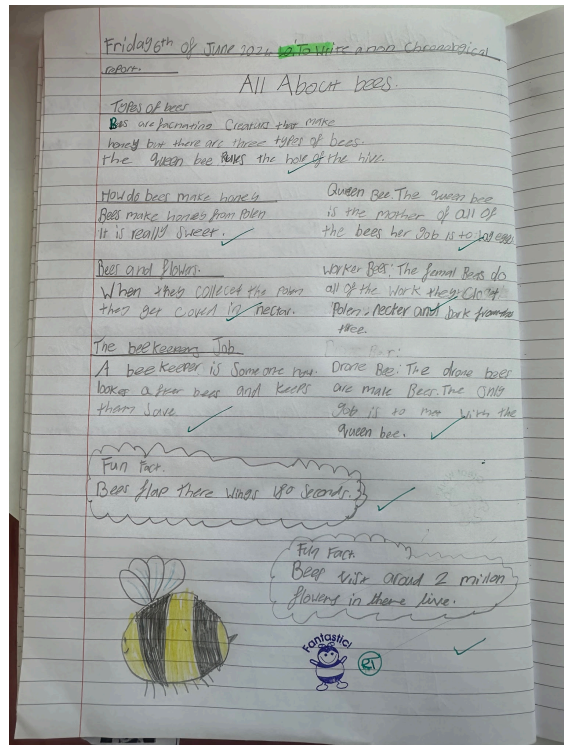 Friday 6th of June 2024 L.O: To Write a non Chronorgical
report.
All About bees.
Types of bees
Bees are facnating Creaturs that make
honey but there are three types of bees.
the queen bee Rules the hole of the hive.
How do bees make honey
Bees make honey from Polen
it is really sweet.
Bees and flowrs.
When they collecet the polen
they get coverd in nectar.
The beekeepers Job
A beekeeper is someone
lookes after bees and keeps
them save
Queen Bee: The queen bee
is the mother of all of
the bees her Job is to lay eggs
Worker Bees: The femal Bees do
all of the work they
Polen: necter and bark from
tree.
Drone Bee: The drone bees
are male Bees. The Only
Job is to with the
queen bee.
Fun Fact.
Bees flap there wings 180 seconds.
Fun Fact.
Bees visit aroud 2 milion
flowers in there live.
Fantastic!
RT